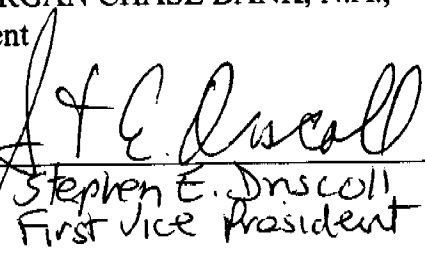 RGAN CHASE BANK, N.A.,
ent
St E. Driscoll
Stephen E. Driscoll
First Vice President